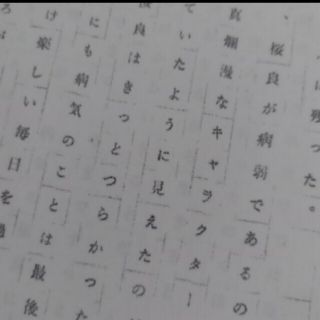 に残った。
、桜良が病弱であるの
真爛漫なキャラクター
ていたように見えたの
良はきっとつらかった
にも病気のことは最後
け楽しい毎日を過